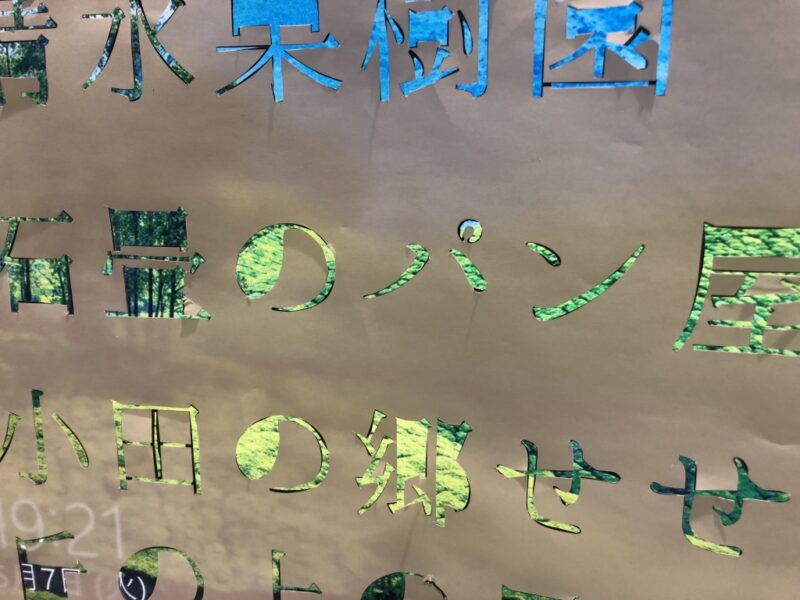 清水果樹園
石畳のパン屋
小田の郷せせ
19:21